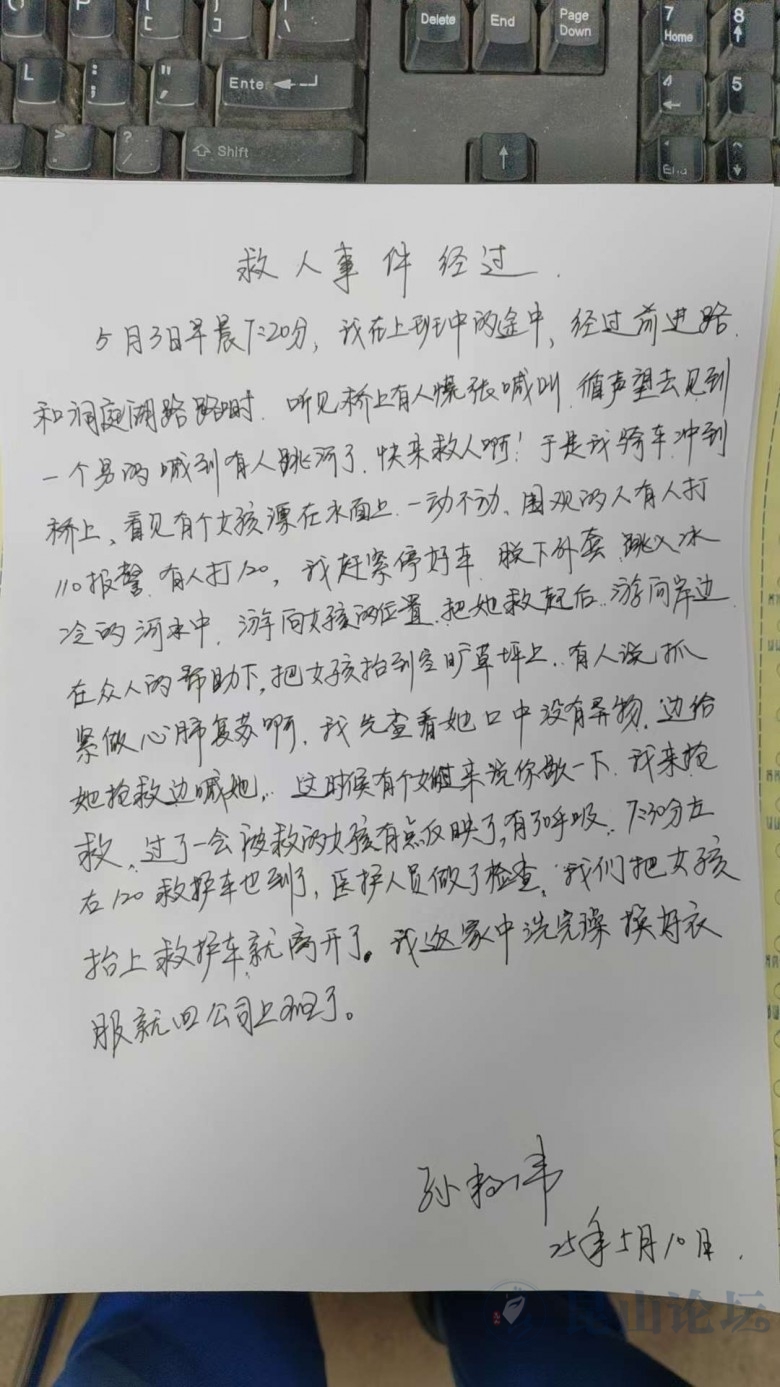 P
[
{
]
}
|
\
Delete
End
Page
Down
7
Home
8
L
:
;
"
'
Enter
4
5
>
.
?
/
Shift
End
救人事件经过.
5月3日早晨7:20分,我在上班中的途中,经过前进路
和洞庭湖路路时.听见桥上有人慌张喊叫.循声望去见到
一个男的喊到有人跳河了.快来救人啊!于是我骑车冲到
桥上,看见有个女孩漂在水面上.一动不动、围观的人有人打
110报警.有人打120,我赶紧停好车.脱下外套.跳入冰
冷的河水中.游向女孩的位置.把她救起后.游向岸边.
在众人的帮助下,把女孩抬到空旷草坪上.有人说抓
紧做心肺复苏啊.我先查看她口中没有异物.边给
她抢救边喊她.这时候有个女过来说你歇一下.我来抢
救.过了一会被救的女孩有点反映了,有了呼吸.7:30分左
右120救护车也到了,医护人员做了检查.我们把女孩
抬上救护车就离开了。我返家中洗完澡换好衣
服就回公司上班了。
孙
25年5月10日.
山论坛